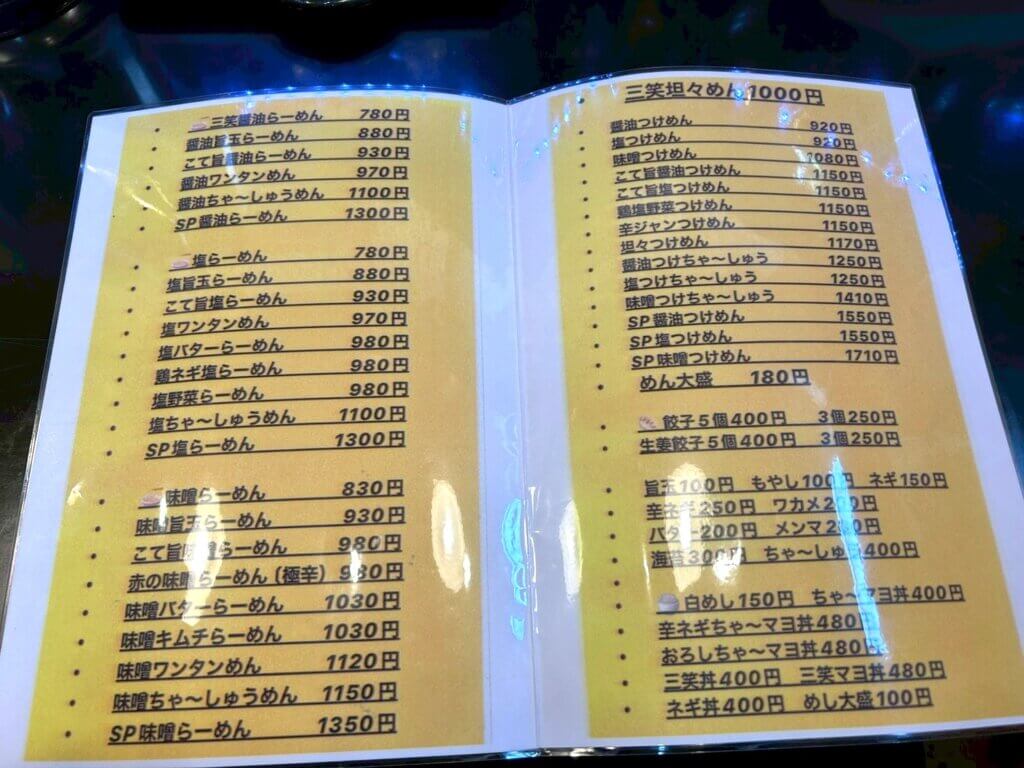 三笑醤油らーめん 780円
醤油旨玉らーめん 880円
こて旨醤油らーめん 930円
醤油ワンタンめん 970円
醤油ちゃ〜しゅうめん 1100円
SP醤油らーめん 1300円
塩らーめん 780円
塩旨玉らーめん 880円
こて旨塩らーめん 930円
塩ワンタンめん 970円
塩バターらーめん 980円
鶏ネギ塩らーめん 980円
塩野菜らーめん 980円
塩ちゃ〜しゅうめん 1100円
SP塩らーめん 1300円
味噌らーめん 830円
味噌旨玉らーめん 930円
こて旨味噌らーめん 980円
赤の味噌らーめん（極辛） 980円
味噌バターらーめん 1030円
味噌キムチらーめん 1030円
味噌ワンタンめん 1120円
味噌ちゃ〜しゅうめん 1150円
SP味噌らーめん 1350円
三笑坦々めん1000円
醤油つけめん 920円
塩つけめん 920円
味噌つけめん 1080円
こて旨醤油つけめん 1150円
こて旨塩つけめん 1150円
鶏塩野菜つけめん 1150円
辛ジャンつけめん 1150円
坦々つけめん 1170円
醤油つけちゃ〜しゅう 1250円
塩つけちゃ〜しゅう 1250円
味噌つけちゃ〜しゅう 1410円
SP醤油つけめん 1550円
SP塩つけめん 1550円
SP味噌つけめん 1710円
めん大盛 180円
餃子5個400円 3個250円
生姜餃子5個400円 3個250円
旨玉100円 もやし100円 ネギ150円
辛ネギ250円 ワカメ200円
バター200円 メンマ230円
海苔300円 ちゃ〜しゅう400円
白めし150円 ちゃ〜マヨ丼400円
辛ネギちゃ〜マヨ丼480円
おろしちゃ〜マヨ丼480円
三笑丼400円 三笑マヨ丼480円
ネギ丼400円 めし大盛100円